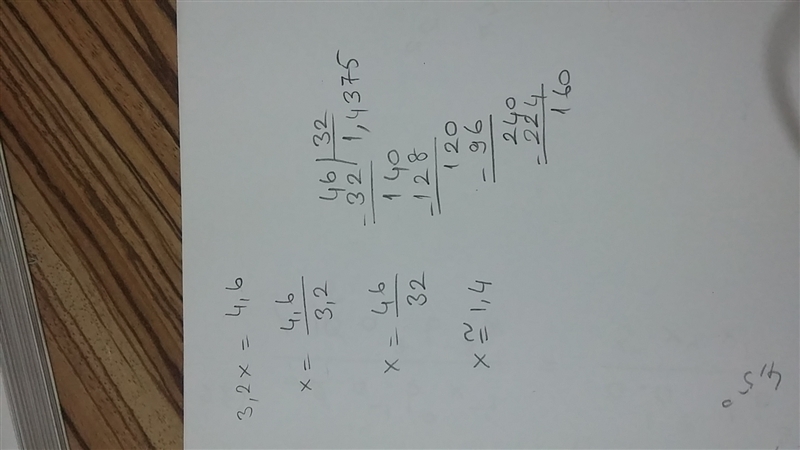 3,2x = 4,6
x = 4,6
3,2
x = 46
32
x ≈ 1,4
46 | 32
- 32 | 1,4375
140
- 128
120
- 96
240
- 224
160
4,5.